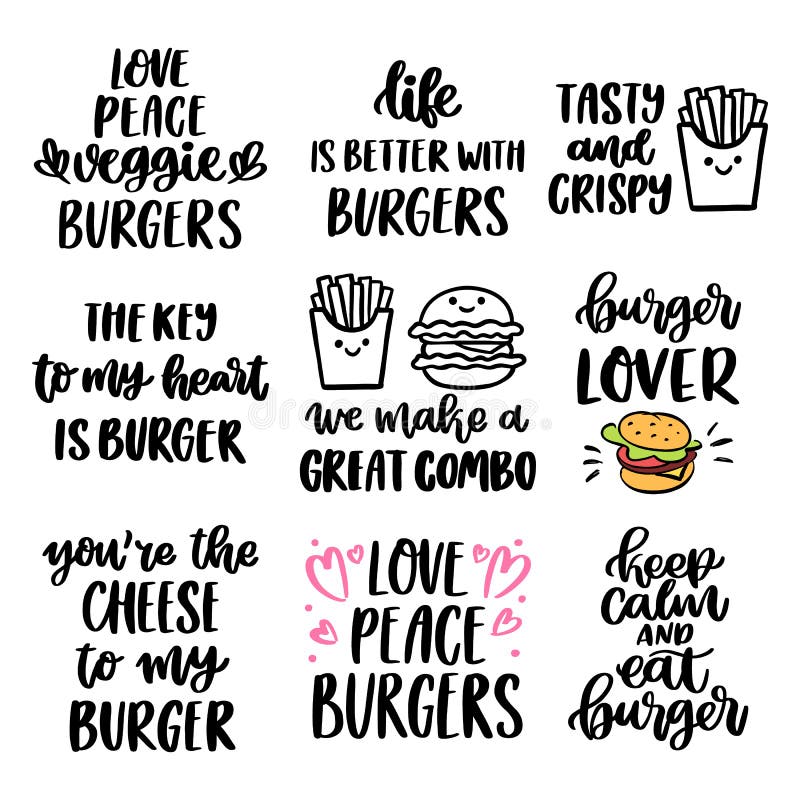 LOVE
PEACE
veggie
BURGERS
life
IS BETTER WITH
BURGERS
TASTY
and
CRISPY
THE KEY
to my heart
IS BURGER
we make a
GREAT COMBO
burger
LOVER
you're the
CHEESE
to my
BURGER
LOVE
PEACE
BURGERS
keep
calm
AND
eat
burger